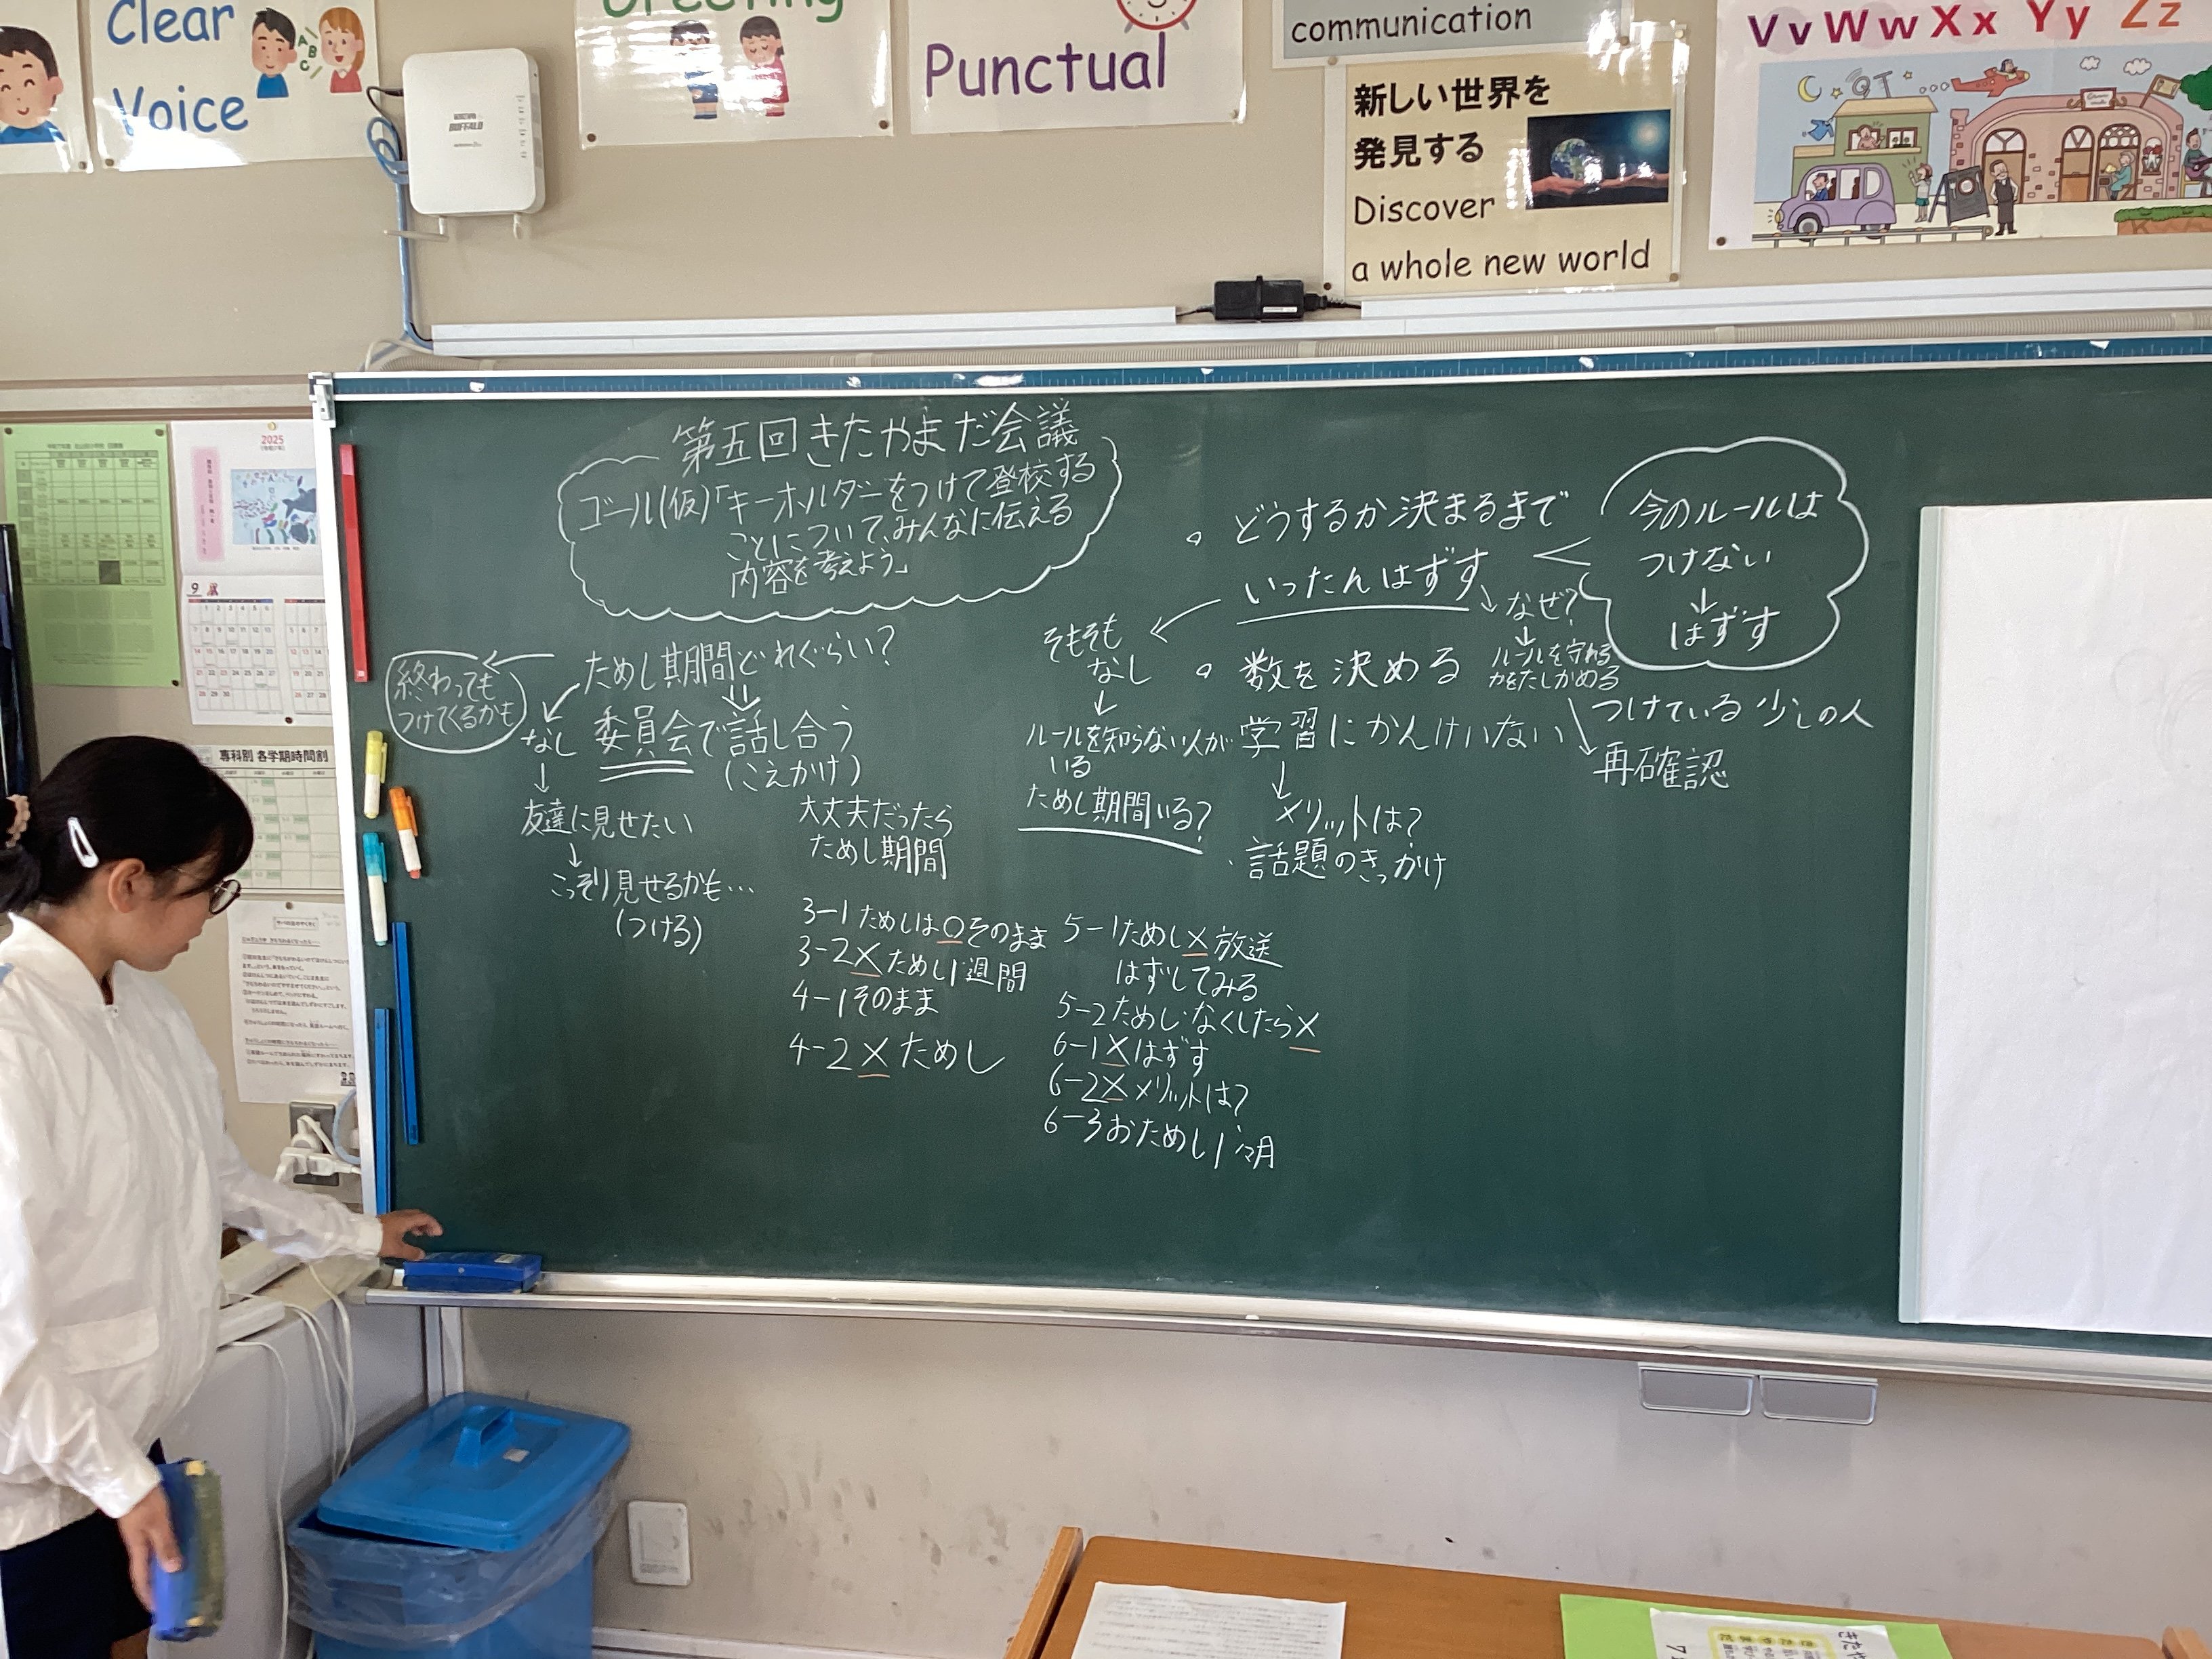 Clear
Voice
Greeting
Punctual
communication
新しい世界を
発見する
Discover
a whole new world
Vv Ww Xx Yy Zz
BUFFALO
2025
9
専科別 各学期時間割
第五回きたやまだ会議
ゴール(仮)「キーホルダーをつけて登校する
ことについて、みんなに伝える
内容を考えよう」
終わっても
つけてくるかも
ためし期間どれぐらい?
なし
委員会で話し合う
(こえかけ)
友達に見せたい
こっそり見せるかも…
(つける)
大丈夫だったら
ためし期間
3-1ためしは○そのまま
3-2×ためし1週間
4-1そのまま
4-2×ためし
5-1ためし×放送
はずしてみる
5-2ためし・なくしたら×
6-1×はずす
6-2×メリットは?
6-3おためし1ヶ月
そもそも
なし
ルールを知らない人が
いる
ためし期間いる?
。どうするか決まるまで
いったんはずす
なぜ?
ルールを守れる
かをたしかめる
。数を決める
学習にかんけいない
メリットは?
・話題のきっかけ
つけている少しの人
再確認
今のルールは
つけない
はずす
きたや